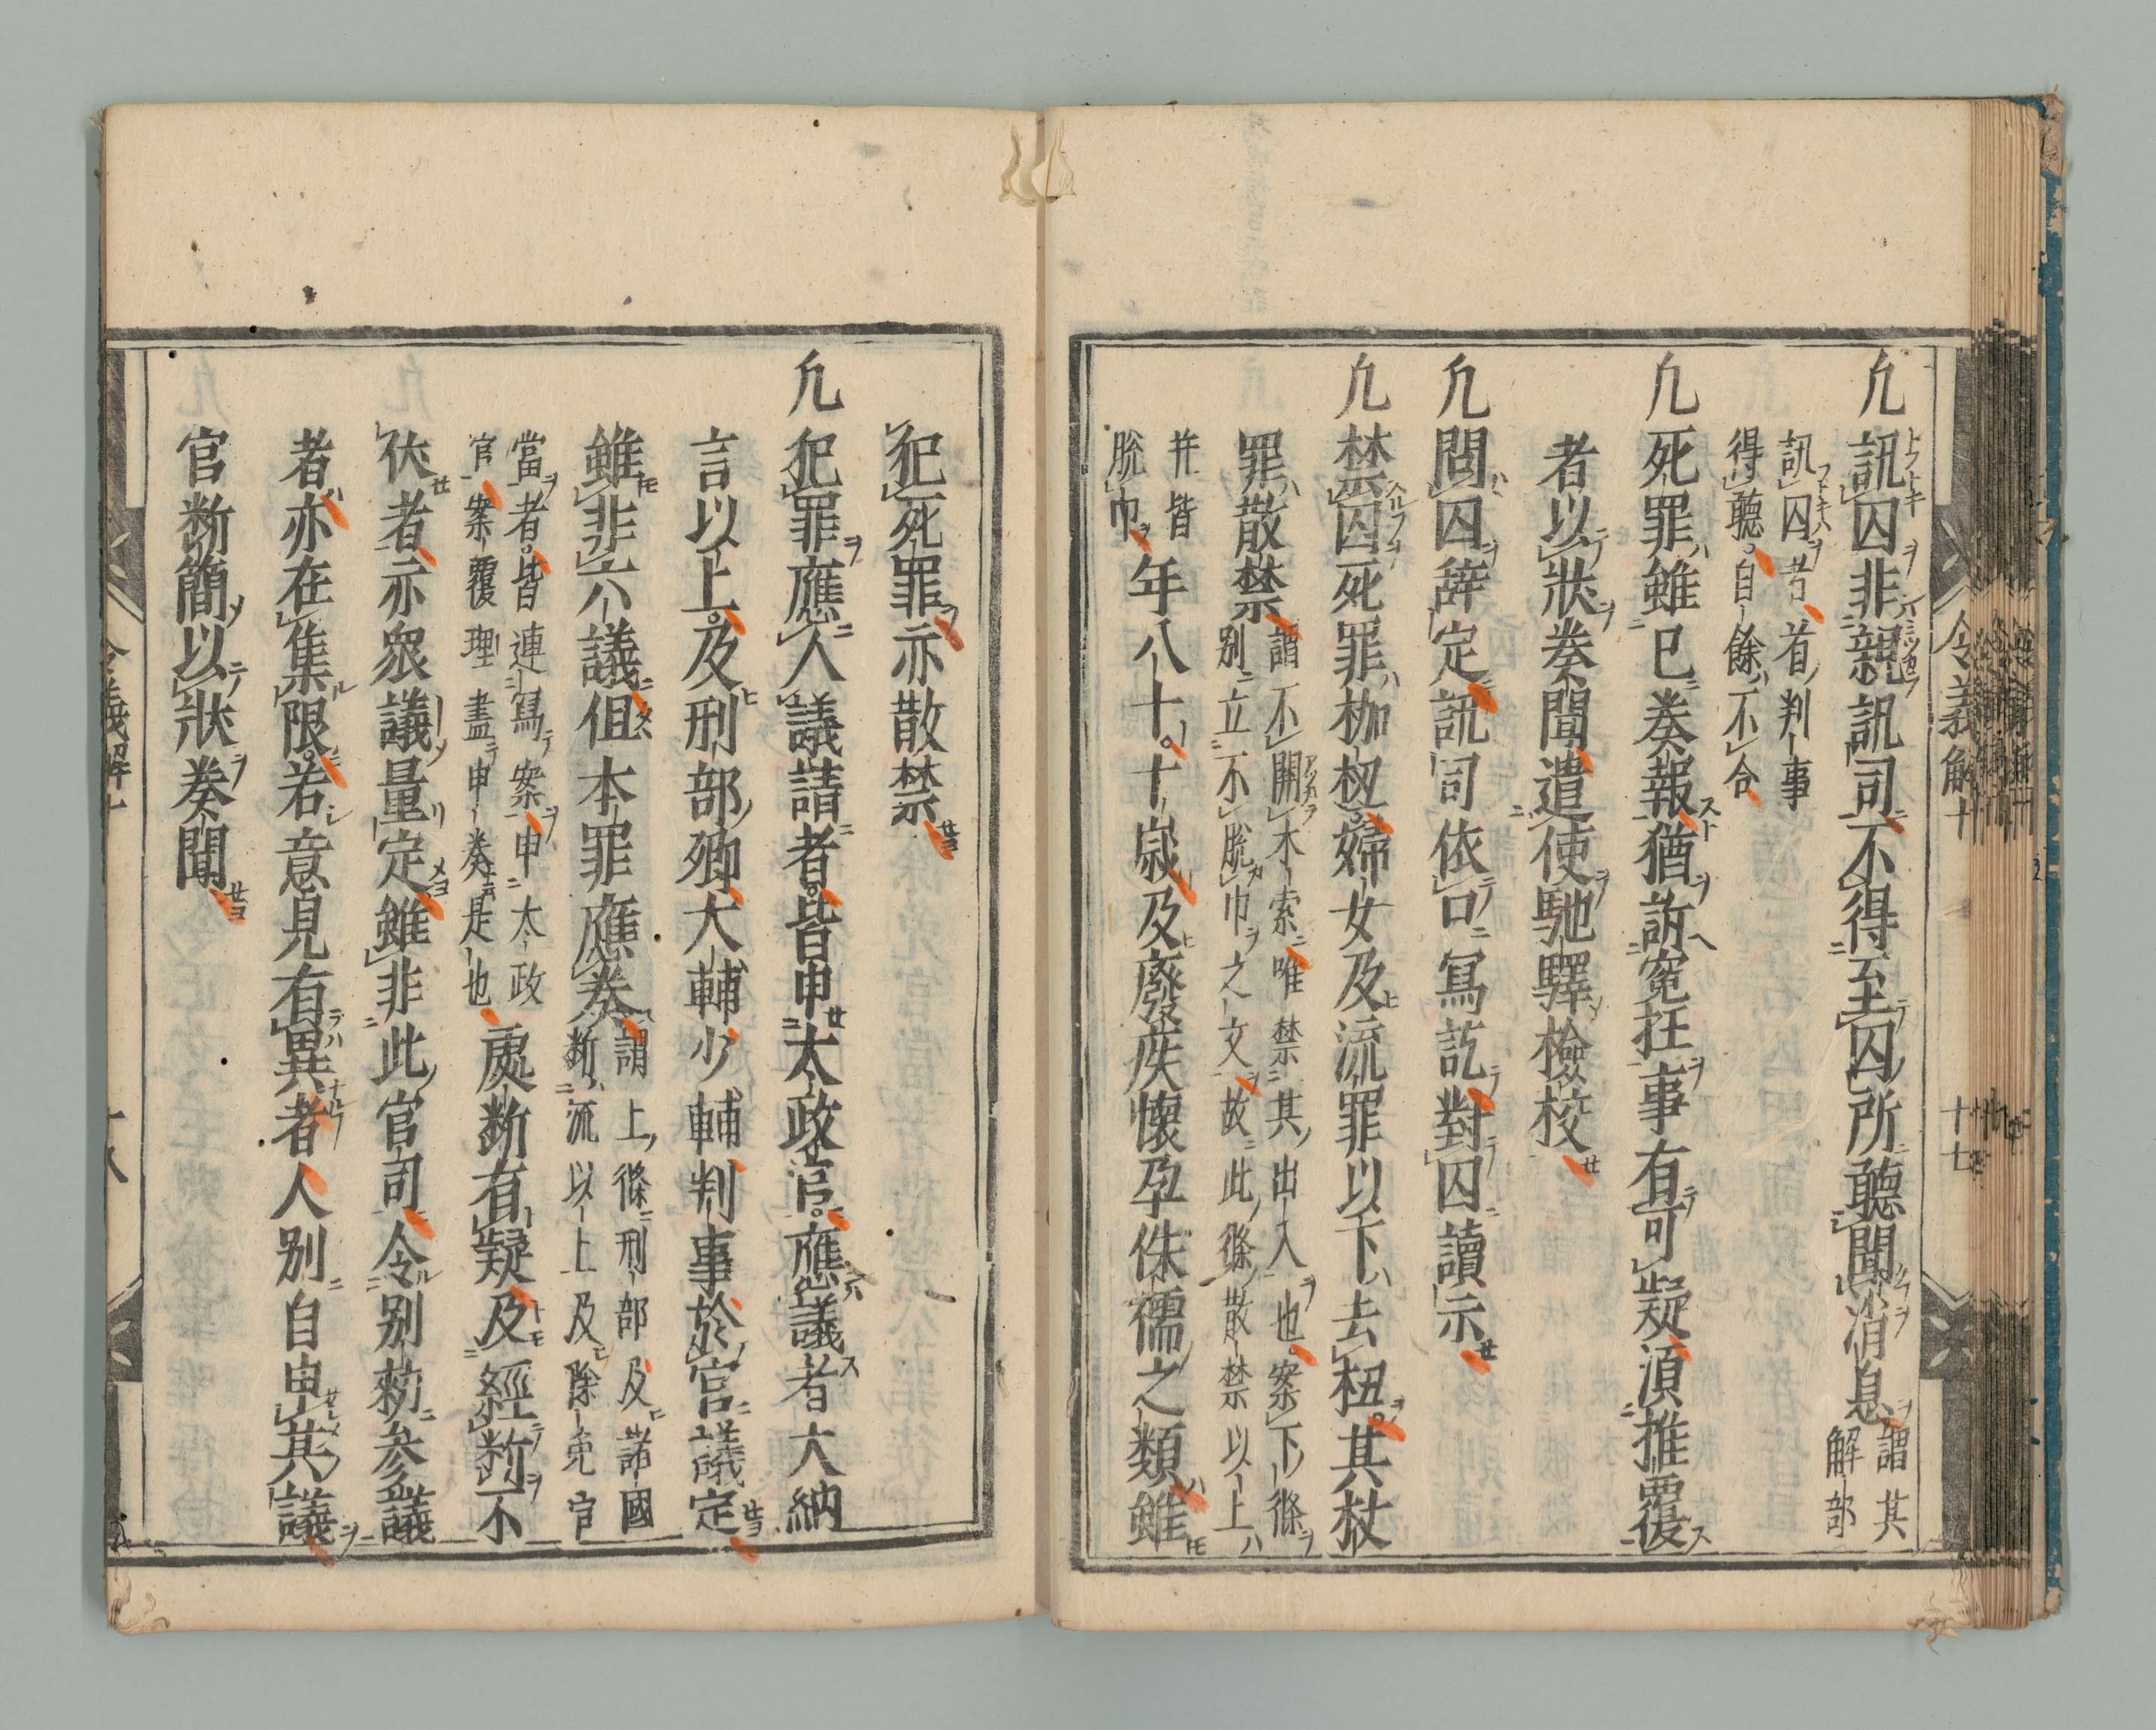 令義解十 十七
凡訊囚非親訊司不得至囚所聽聞消息謂其
解部
訊囚者首判事
得聽自餘不合
凡死罪雖已奏報猶訴寃枉事有可疑須推覆
者以狀奏聞遣使馳驛檢校
凡問囚辭定訊司依口寫訖對囚讀示
凡禁囚死罪枷杻婦女及流罪以下去杻其杖
罪散禁謂不關木索唯禁其出入也案下條
別立不脫巾之文故此條散禁以上
并皆
脫巾年八十十歲及廢疾懷孕侏儒之類雖
犯死罪亦散禁
凡犯罪應入議請者皆申太政官應議者大納
言以上及刑部卿大輔少輔判事於官議定
雖非六議但本罪應奏謂上條刑部及諸國
斷流以上及除免官
當者皆連寫案申太政
官案覆理盡申奏是也處斷有疑及經斷不
伏者亦衆議量定雖非此官司令別勑參議
者亦在集限若意見有異者人別自申其議
官斷簡以狀奏聞